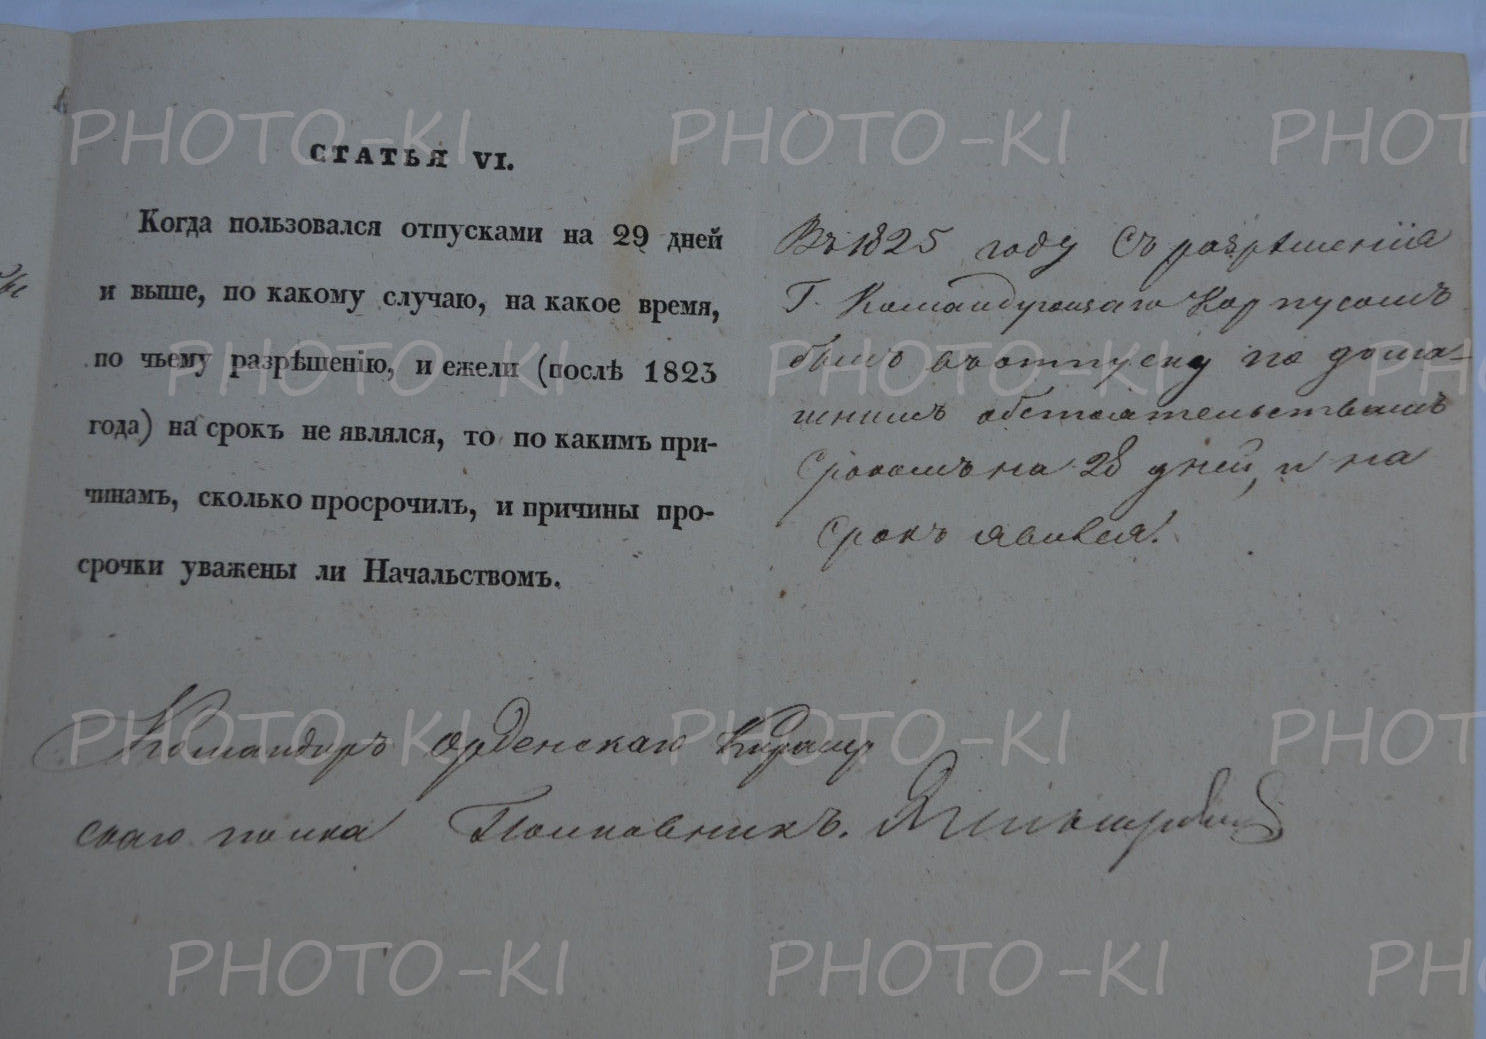 СТАТЬЯ VI.
Когда пользовался отпусками на 29 дней
и выше, по какому случаю, на какое время,
по чьему разрѣшенію, и ежели (послѣ 1823
года) на срокъ не являлся, то по какимъ при-
чинамъ, сколько просрочилъ, и причины про-
срочки уважены ли Начальствомъ.
Въ 1825 году Съ разрѣшенія
Г. Командующаго Корпусомъ
былъ въ отпуску по дома-
шнимъ обстоятельствамъ
срокомъ на 28 дней, и на
срокъ явился!
Командиръ Орденскаго Кирасир
скаго полка Полковникъ.
PHOTO-KI